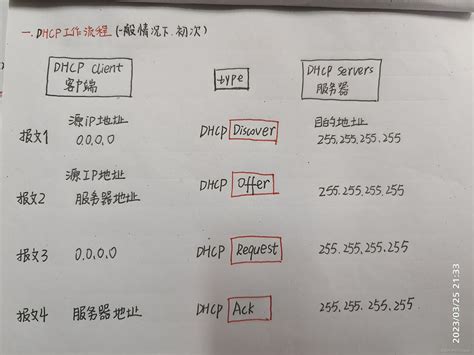 一.DHCP工作流程(一般情况下.初次)
DHCP Client
客户端
type
DHCP Servers
服务器
源iP地址
目的地址
报文1 0.0.0.0 DHCP Discover 255.255.255.255
源IP地址
报文2 服务器地址 DHCP Offer 255.255.255.255
报文3 0.0.0.0 DHCP Request 255.255.255.255
报文4 服务器地址 DHCP Ack 255.255.255.255
2023/03/25 21:33